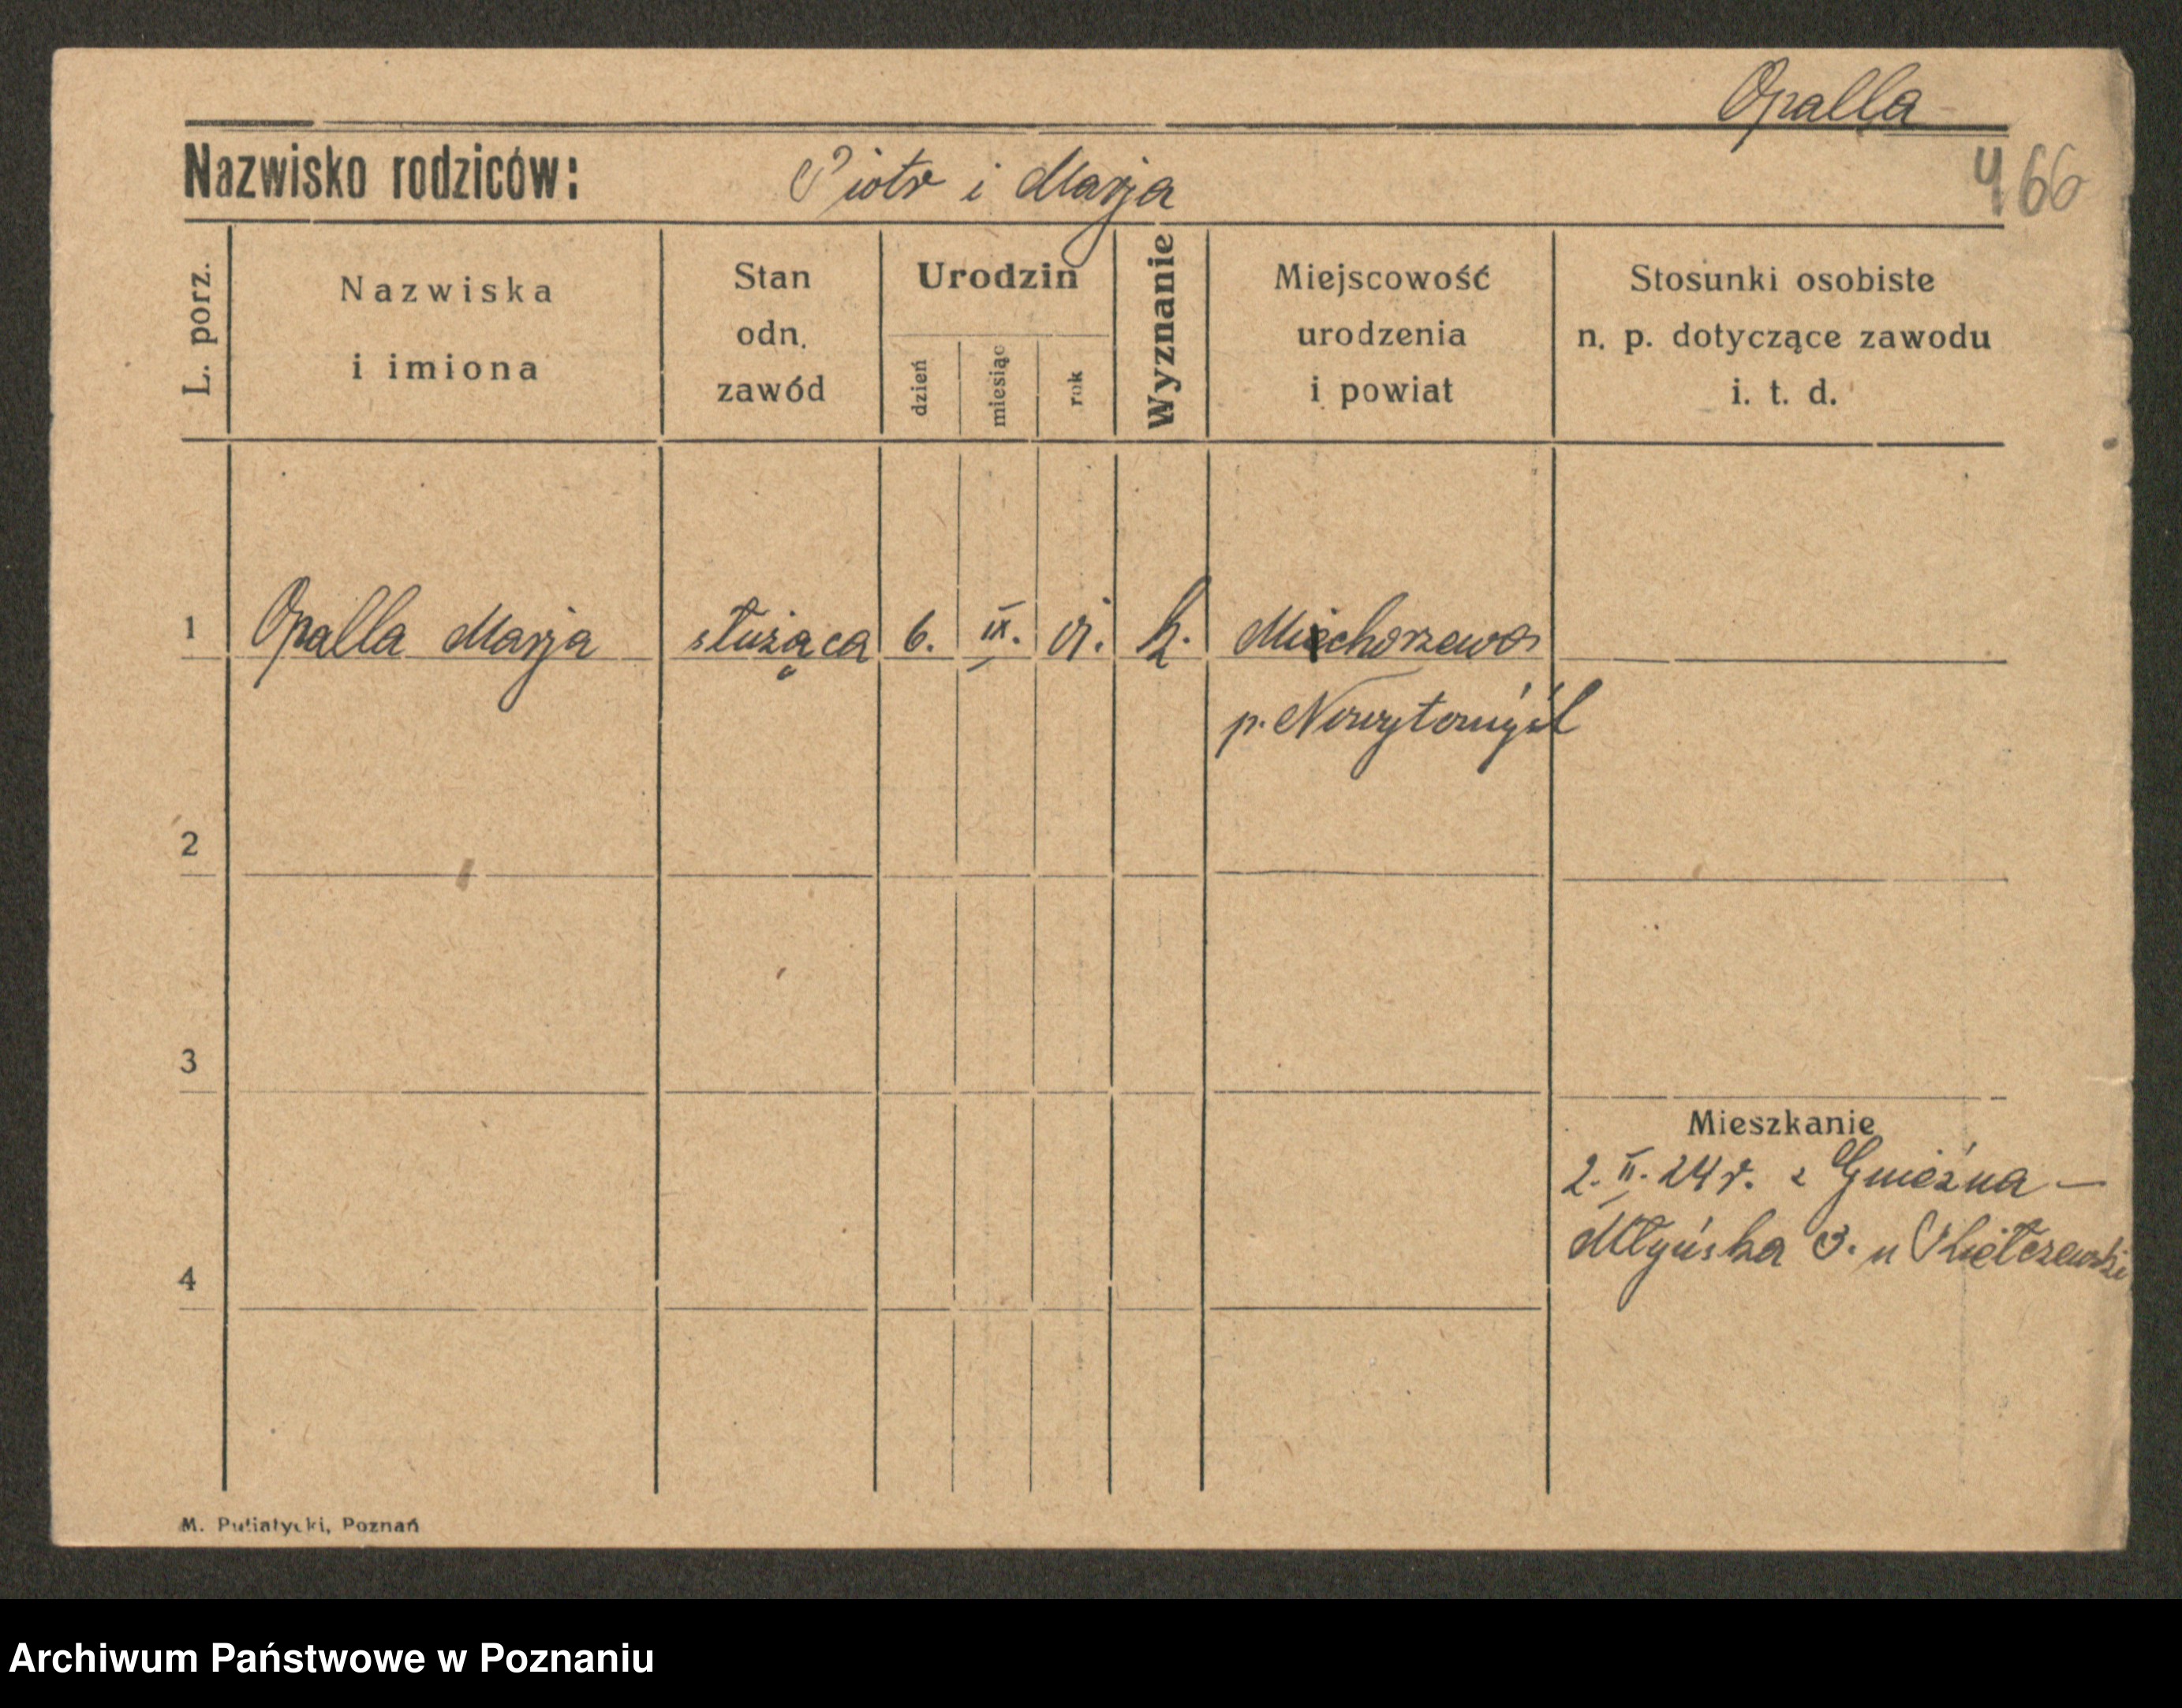 Opalla
466
Nazwisko rodziców: Piotr i Marja
L. porz.
Nazwiska
i imiona
Stan
odn.
zawód
Urodzin
dzień
miesiąc
rok
Wyznanie
Miejscowość
urodzenia
i powiat
Stosunki osobiste
n. p. dotyczące zawodu
i. t. d.
1 Opalla Marja służąca 6. IX. 01. k. Michorzewo
p. Nowytomyśl
2
3
Mieszkanie
2. II. 24 r. z Gniezna —
Młyńska 3. u
4
M. Putiatycki, Poznań
Archiwum Państwowe w Poznaniu